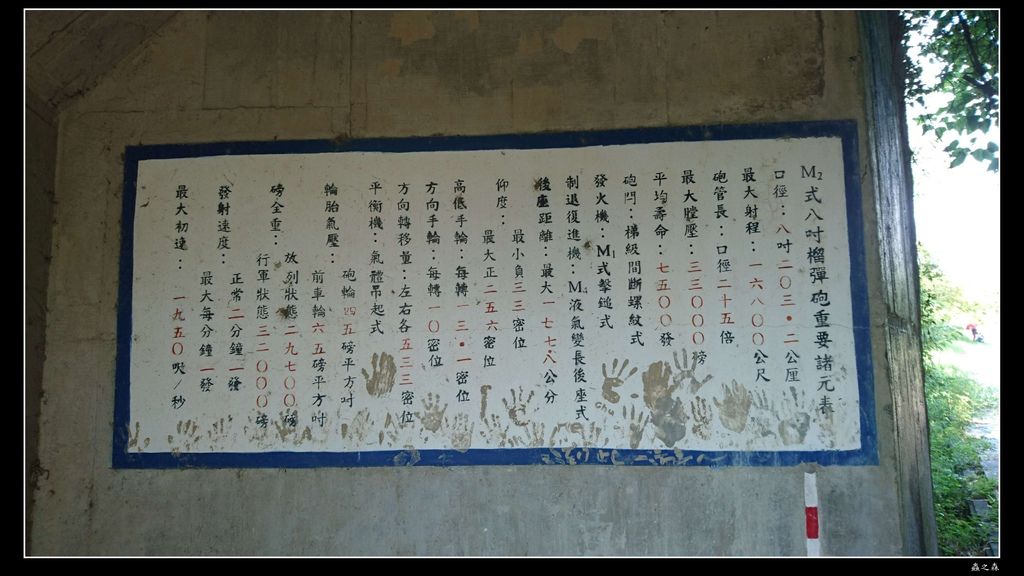 M2式八吋榴彈砲重要諸元表
口徑：八吋二０三·二公厘
最大射程：一六八００公尺
砲管長：口徑二十五倍
最大膛壓：三三０００磅
平均壽命：七五００發
砲閂：梯級間斷螺紋式
發火機：M1式擊鎚式
制退復進機：M4液氣變長後座式
後座距離：最大一七七·八公分
仰度：最小負三三密位
最大正二五六密位
高低手輪：每轉一三·一密位
方向手輪：每轉一０密位
方向轉移量：左右各五三三密位
平衡機：氣體吊起式
輪胎氣壓：砲輪四五磅平方吋
前車輪六五磅平方吋
磅全重：放列狀態二九七００磅
行軍狀態三二０００磅
發射速度：正常二分鐘一發
最大每分鐘一發
最大初速：一九五０呎/秒
蟲之森